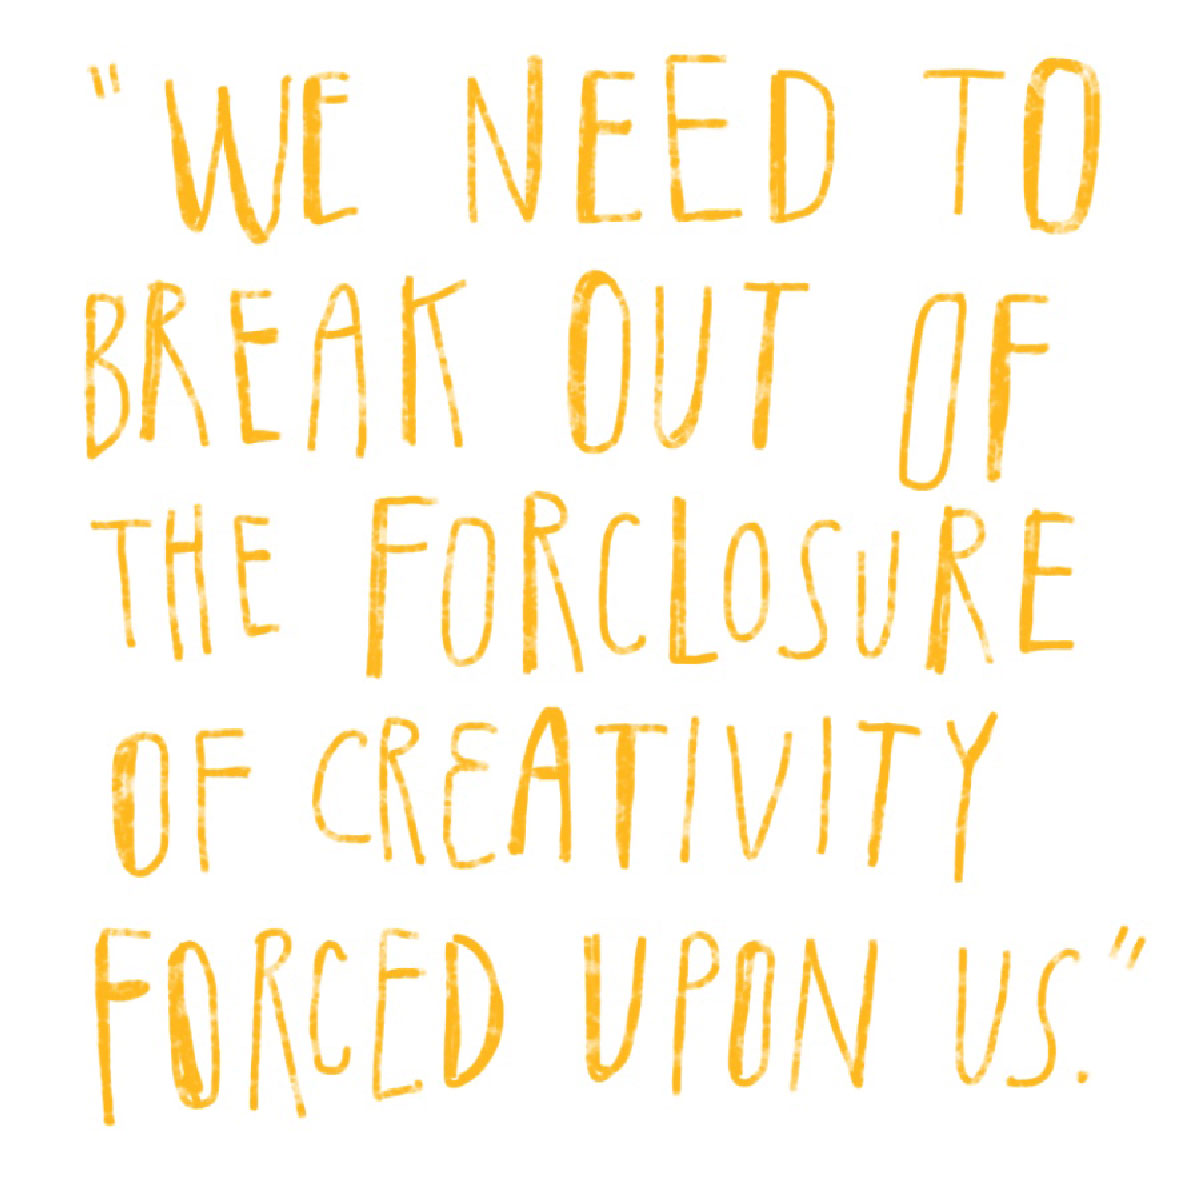 "WE NEED TO
BREAK OUT OF
THE FORCLOSURE
OF CREATIVITY
FORCED UPON US."